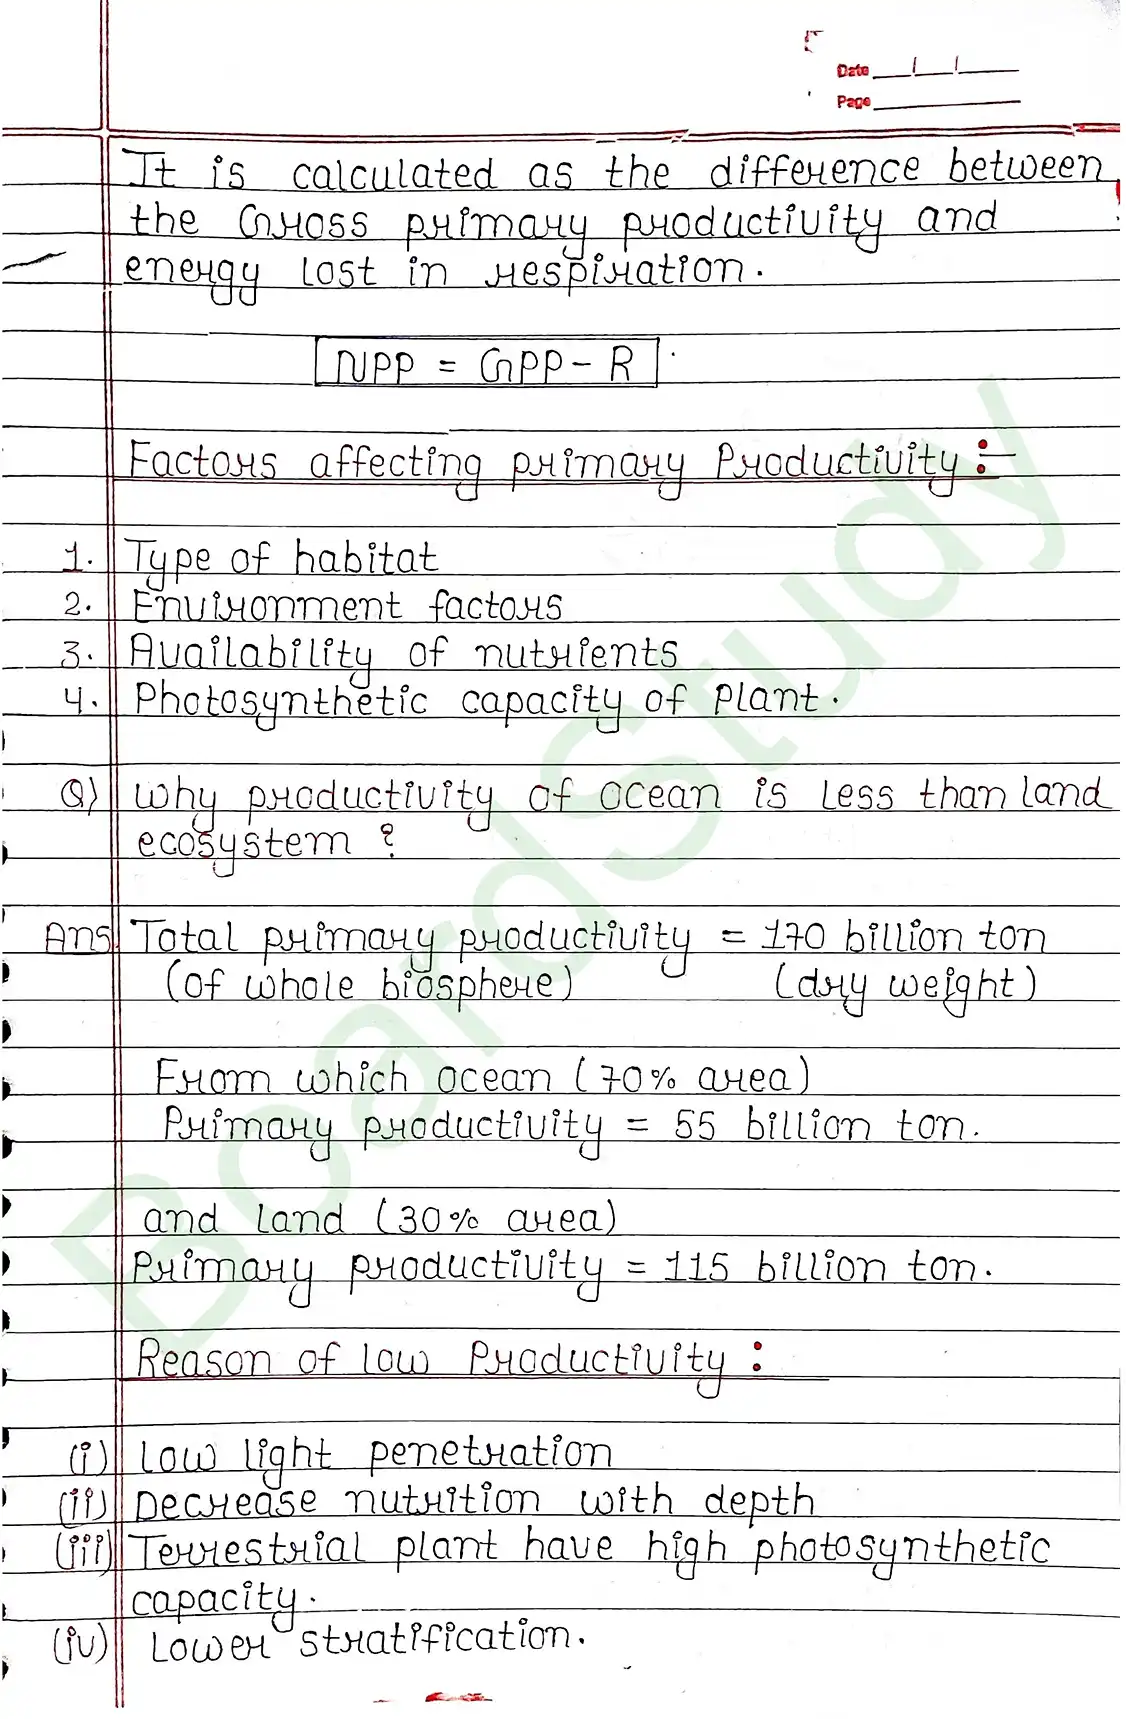 Date
Page
It is calculated as the difference between
the Gross primary productivity and
energy lost in respiration.
NPP = GPP - R
Factors affecting primary Productivity :-
1. Type of habitat
2. Environment factors
3. Availability of nutrients
4. Photosynthetic capacity of Plant.
Q) Why productivity of ocean is less than land
ecosystem ?
Ans. Total primary productivity = 170 billion ton
(of whole biosphere) (dry weight)
From which ocean (70% area)
Primary productivity = 55 billion ton.
and land (30% area)
Primary productivity = 115 billion ton.
Reason of low Productivity :
(i) Low light penetration
(ii) Decrease nutrition with depth
(iii) Terrestrial plant have high photosynthetic
capacity.
(iv) Lower stratification.
BoardStudy